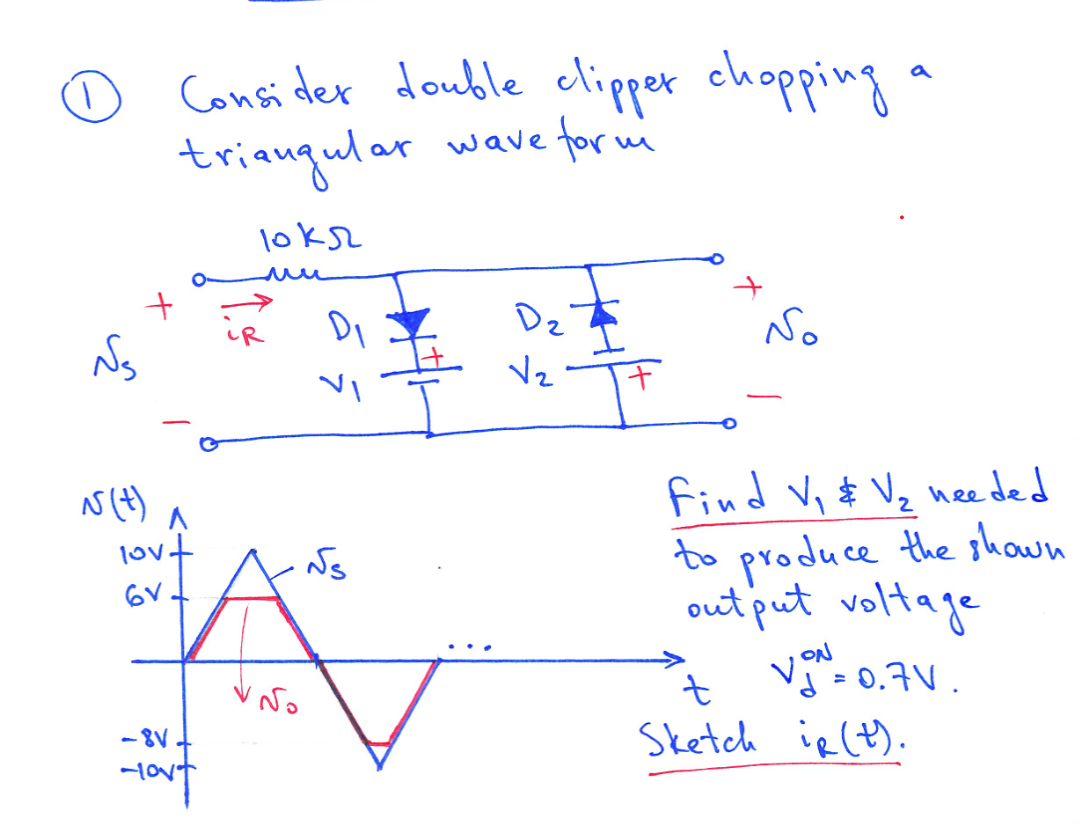 ① Consider double clipper chopping a
triangular waveform
10kΩ
+
iR
D1
D2
+
vs
V1
+
V2
+
vo
−
−
v(t)
10V
6V
vs
...
t
vo
-8V
-10V
Find V1 & V2 needed
to produce the shown
output voltage
VdON = 0.7V.
Sketch iR(t).